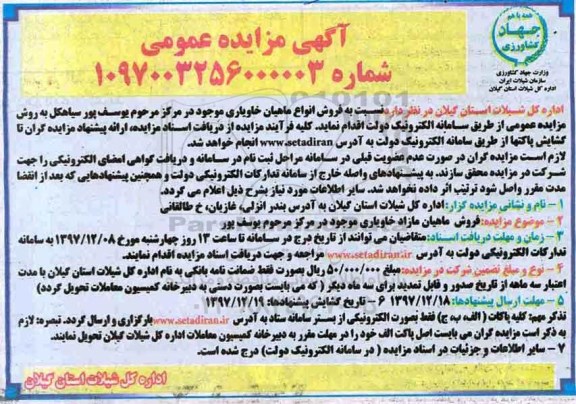 همه با هم
جهاد
کشاورزی
وزارت جهاد کشاورزی
سازمان شیلات ایران
اداره کل شیلات استان گیلان
آگهی مزایده عمومی
شماره ۱۰۹۷۰۰۳۲۵۶۰۰۰۰۰۳
اداره کل شیلات استان گیلان در نظر دارد نسبت به فروش انواع ماهیان خاویاری موجود در مرکز مرحوم یوسف پور سیاهکل به روش
مزایده عمومی از طریق سامانه الکترونیک دولت اقدام نماید. کلیه فرآیند مزایده از دریافت اسناد مزایده، ارائه پیشنهاد مزایده گران تا
گشایش پاکتها از طریق سامانه الکترونیک دولت به آدرس www.setadiran.ir انجام خواهد شد.
لازم است مزایده گران در صورت عدم عضویت قبلی در سامانه مراحل ثبت نام در سامانه و دریافت گواهی امضای الکترونیکی را جهت
شرکت در مزایده محقق سازند. به پیشنهادهای واصله خارج از سامانه تدارکات الکترونیکی دولت و همچنین پیشنهادهایی که بعد از انقضا
مدت مقرر واصل شود ترتیب اثر داده نخواهد شد. سایر اطلاعات مورد نیاز بشرح ذیل اعلام می گردد.
۱ - نام و نشانی مزایده گزار: اداره کل شیلات استان گیلان به آدرس بندر انزلی، غازیان، خ طالقانی
۲ - موضوع مزایده: فروش ماهیان مازاد خاویاری موجود در مرکز مرحوم یوسف پور
۳ - زمان و مهلت دریافت اسناد: متقاضیان می توانند از تاریخ درج در سامانه تا ساعت ۱۳ روز چهارشنبه مورخ ۱۳۹۷/۱۲/۰۸ به سامانه
تدارکات الکترونیکی دولت به آدرس www.setadiran.ir مراجعه و جهت دریافت اسناد مزایده اقدام نمایند.
۴ - نوع و مبلغ تضمین شرکت در مزایده: مبلغ ۵۰/۰۰۰/۰۰۰ ریال بصورت فقط ضمانت نامه بانکی به نام اداره کل شیلات استان گیلان با مدت
اعتبار سه ماهه از تاریخ صدور و قابل تمدید برای سه ماه دیگر ( که می بایست بصورت دستی به دبیرخانه کمیسیون معاملات تحویل گردد)
۵ - مهلت ارسال پیشنهادها: ۱۳۹۷/۱۲/۱۸ ۶ - تاریخ گشایش پیشنهادها: ۱۳۹۷/۱۲/۱۹
تذکر مهم: کلیه پاکات ( الف، ب، ج) فقط بصورت الکترونیکی از بستر سامانه ستاد به آدرس www.setadiran.ir بارگزاری و ارسال گردد. تبصره: لازم
به ذکر است مزایده گران می بایست اصل پاکت الف خود را در مهلت مقرر به دبیرخانه کمیسیون معاملات اداره کل شیلات گیلان تحویل نمایند.
۷ - سایر اطلاعات و جزئیات در اسناد مزایده ( در سامانه الکترونیک دولت) درج شده است.
اداره کل شیلات استان گیلان